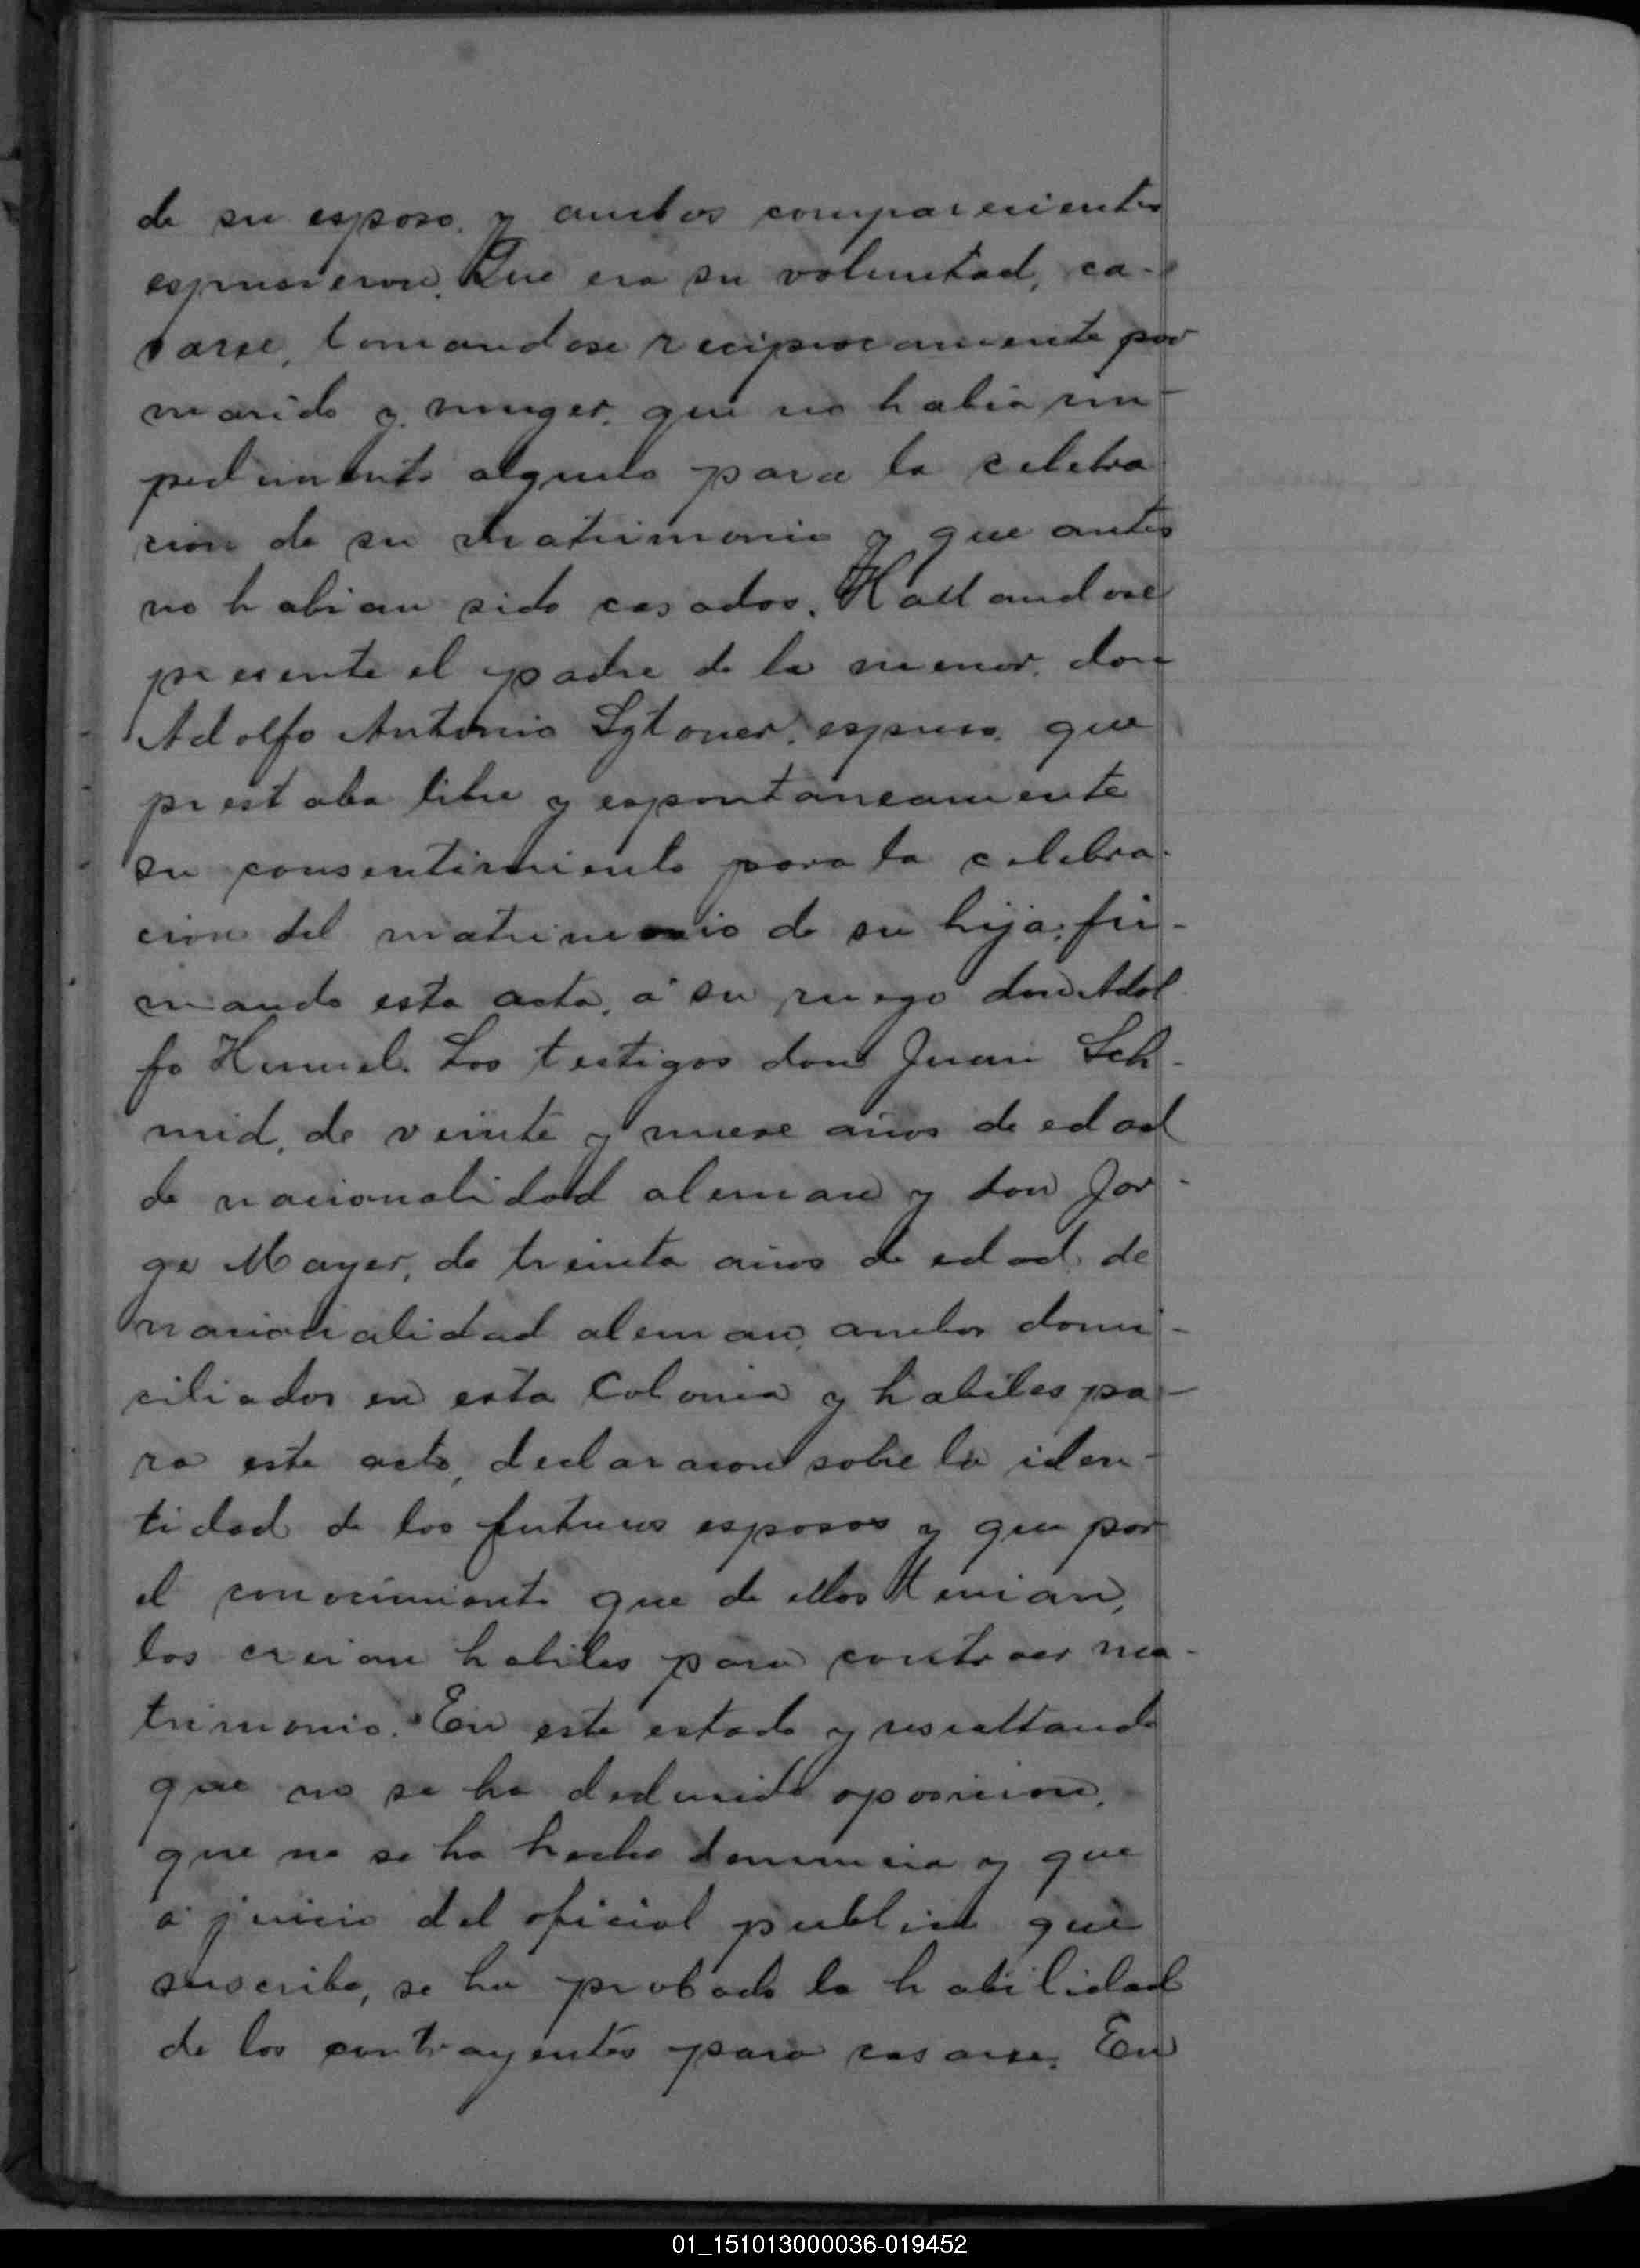 de su esposo. y ambos comparecientes
espusieron. Que era su voluntad, ca-
sarse, tomandose reciprocamente por
marido y muger. que no habia im-
pedimento alguno para la celebra
cion de su matrimonio y que antes
no habian sido casados. Hallandose
presente el padre de la menor. don
Adolfo Antonio Sgtoner. espuso. que
prestaba libre y espontaneamente
su consentimiento para la celebra-
cion del matrimonio de su hija. fir-
mando esta acta, á su ruego don Adol
fo Hummel. Los testigos don Juan Sch-
mid, de veinte y nueve años de edad
de nacionalidad aleman y don Jor-
ge Mayer, de treinta años de edad. de
nacionalidad aleman, ambos domi-
ciliados en esta Colonia y habiles pa-
ra este acto, declararon sobre la iden-
tidad de los futuros esposos y que por
el conocimiento que de ellos tenian,
los creian habiles para contraer ma-
trimonio. En este estado y resultando
que no se ha deducido oposicion.
que no se ha hecho denuncia y que
á juicio del oficial publico que
suscribe, se ha probado la habilidad
de los contrayentes para casarse. En
01_151013000036-019452